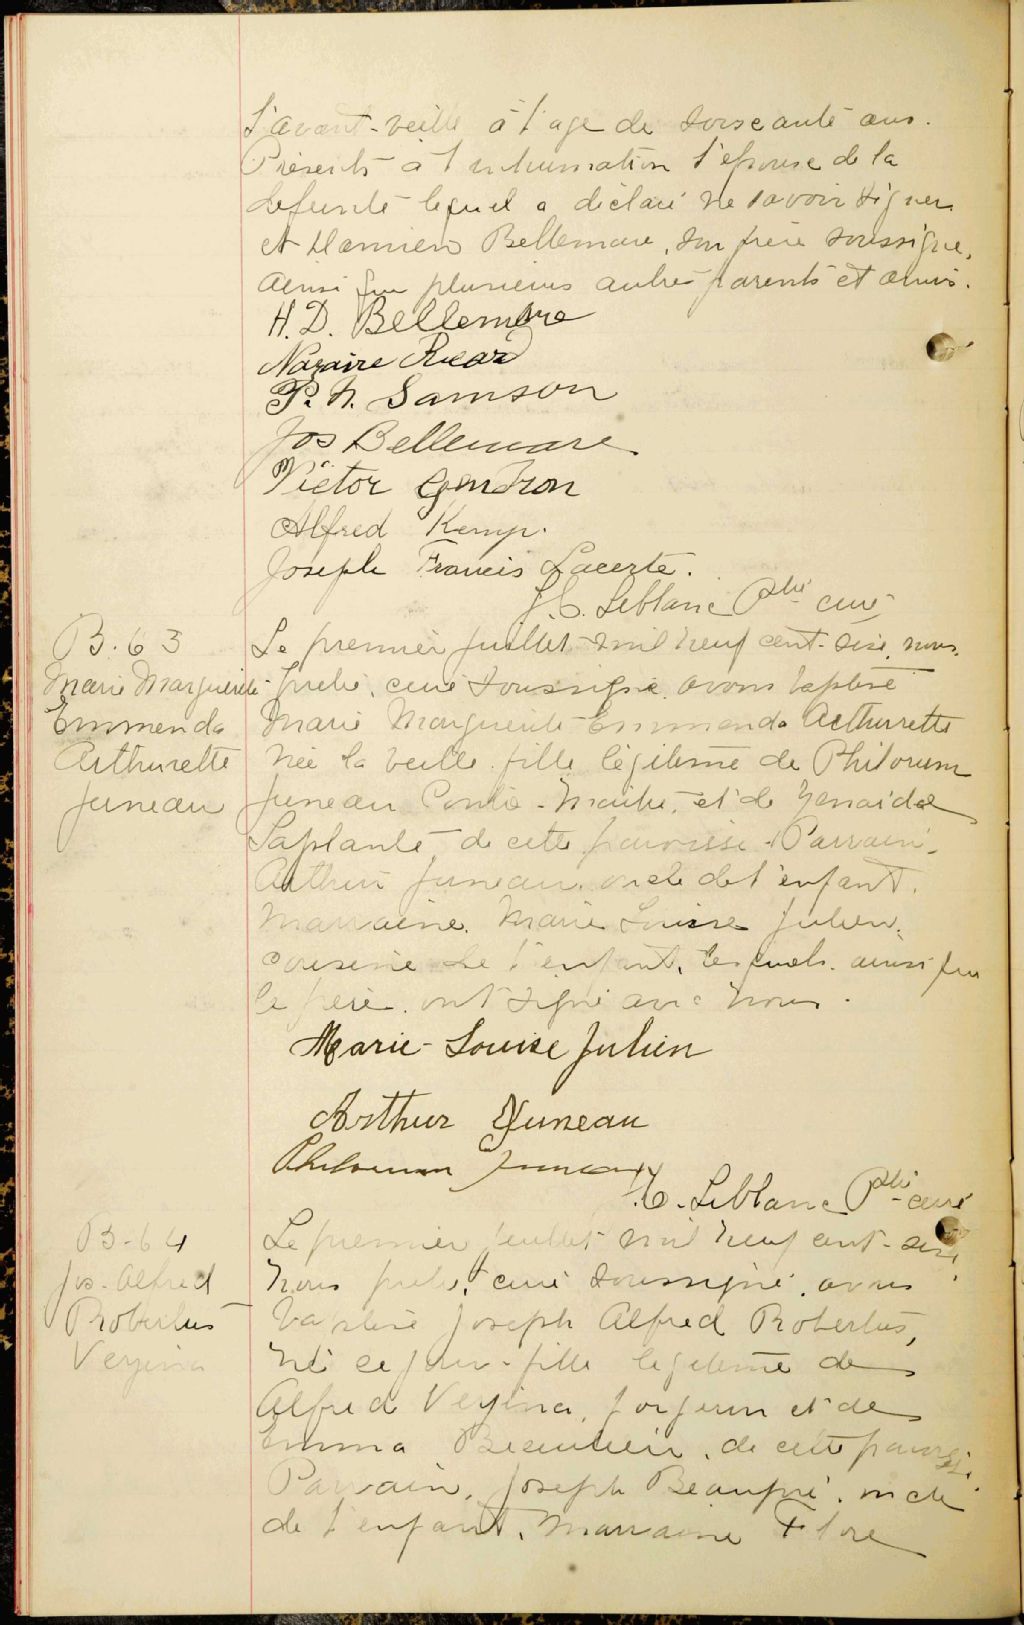 l'avant-veille à l'age de soixante ans.
Présents à l'inhumation l'epoux de la
defunte lequel a déclaré ne savoir signer
et Damien Bellemare, son frère soussigné,
ainsi que plusieurs autres parents et amis.
H. D. Bellemare
Nazaire Ricard
P. N. Samson
Jos Bellemare
Victor Gendron
Alfred Kemp.
Joseph Francis Lacerte.
J. C. Leblanc Ptre curé
B. 63
Marie Marguerite
Emmenda
Arthurette
Juneau
Le premier juillet mil neuf cent-seize, nous
Prêtre, curé soussigné, avons baptisé
Marie Marguerite Emmenda Arthurette
née la veille fille légitime de Philorum
Juneau Contre-Maitre, et de Zenaïde
Laplante de cette paroisse. Parrain,
Arthur Juneau, oncle de l'enfant.
Marraine, Marie Louise Julien,
cousine de l'enfant, lesquels, ainsi que
le père, ont signé avec nous.
Marie-Louise Julien
Arthur Juneau
Philorum Juneau
J. C. Leblanc Ptre curé
B-64
Jos-Alfred
Robertus
Vezina
Le premier juillet mil neuf cent-seize,
nous prêtre, curé soussigné, avons
baptisé Joseph Alfred Robertus,
né ce jour-fille legitime de
Alfred Vezina, forgeron et de
Emma de cette paroisse.
Parrain, Joseph Beaupré, oncle
de l'enfant, Marraine Flore